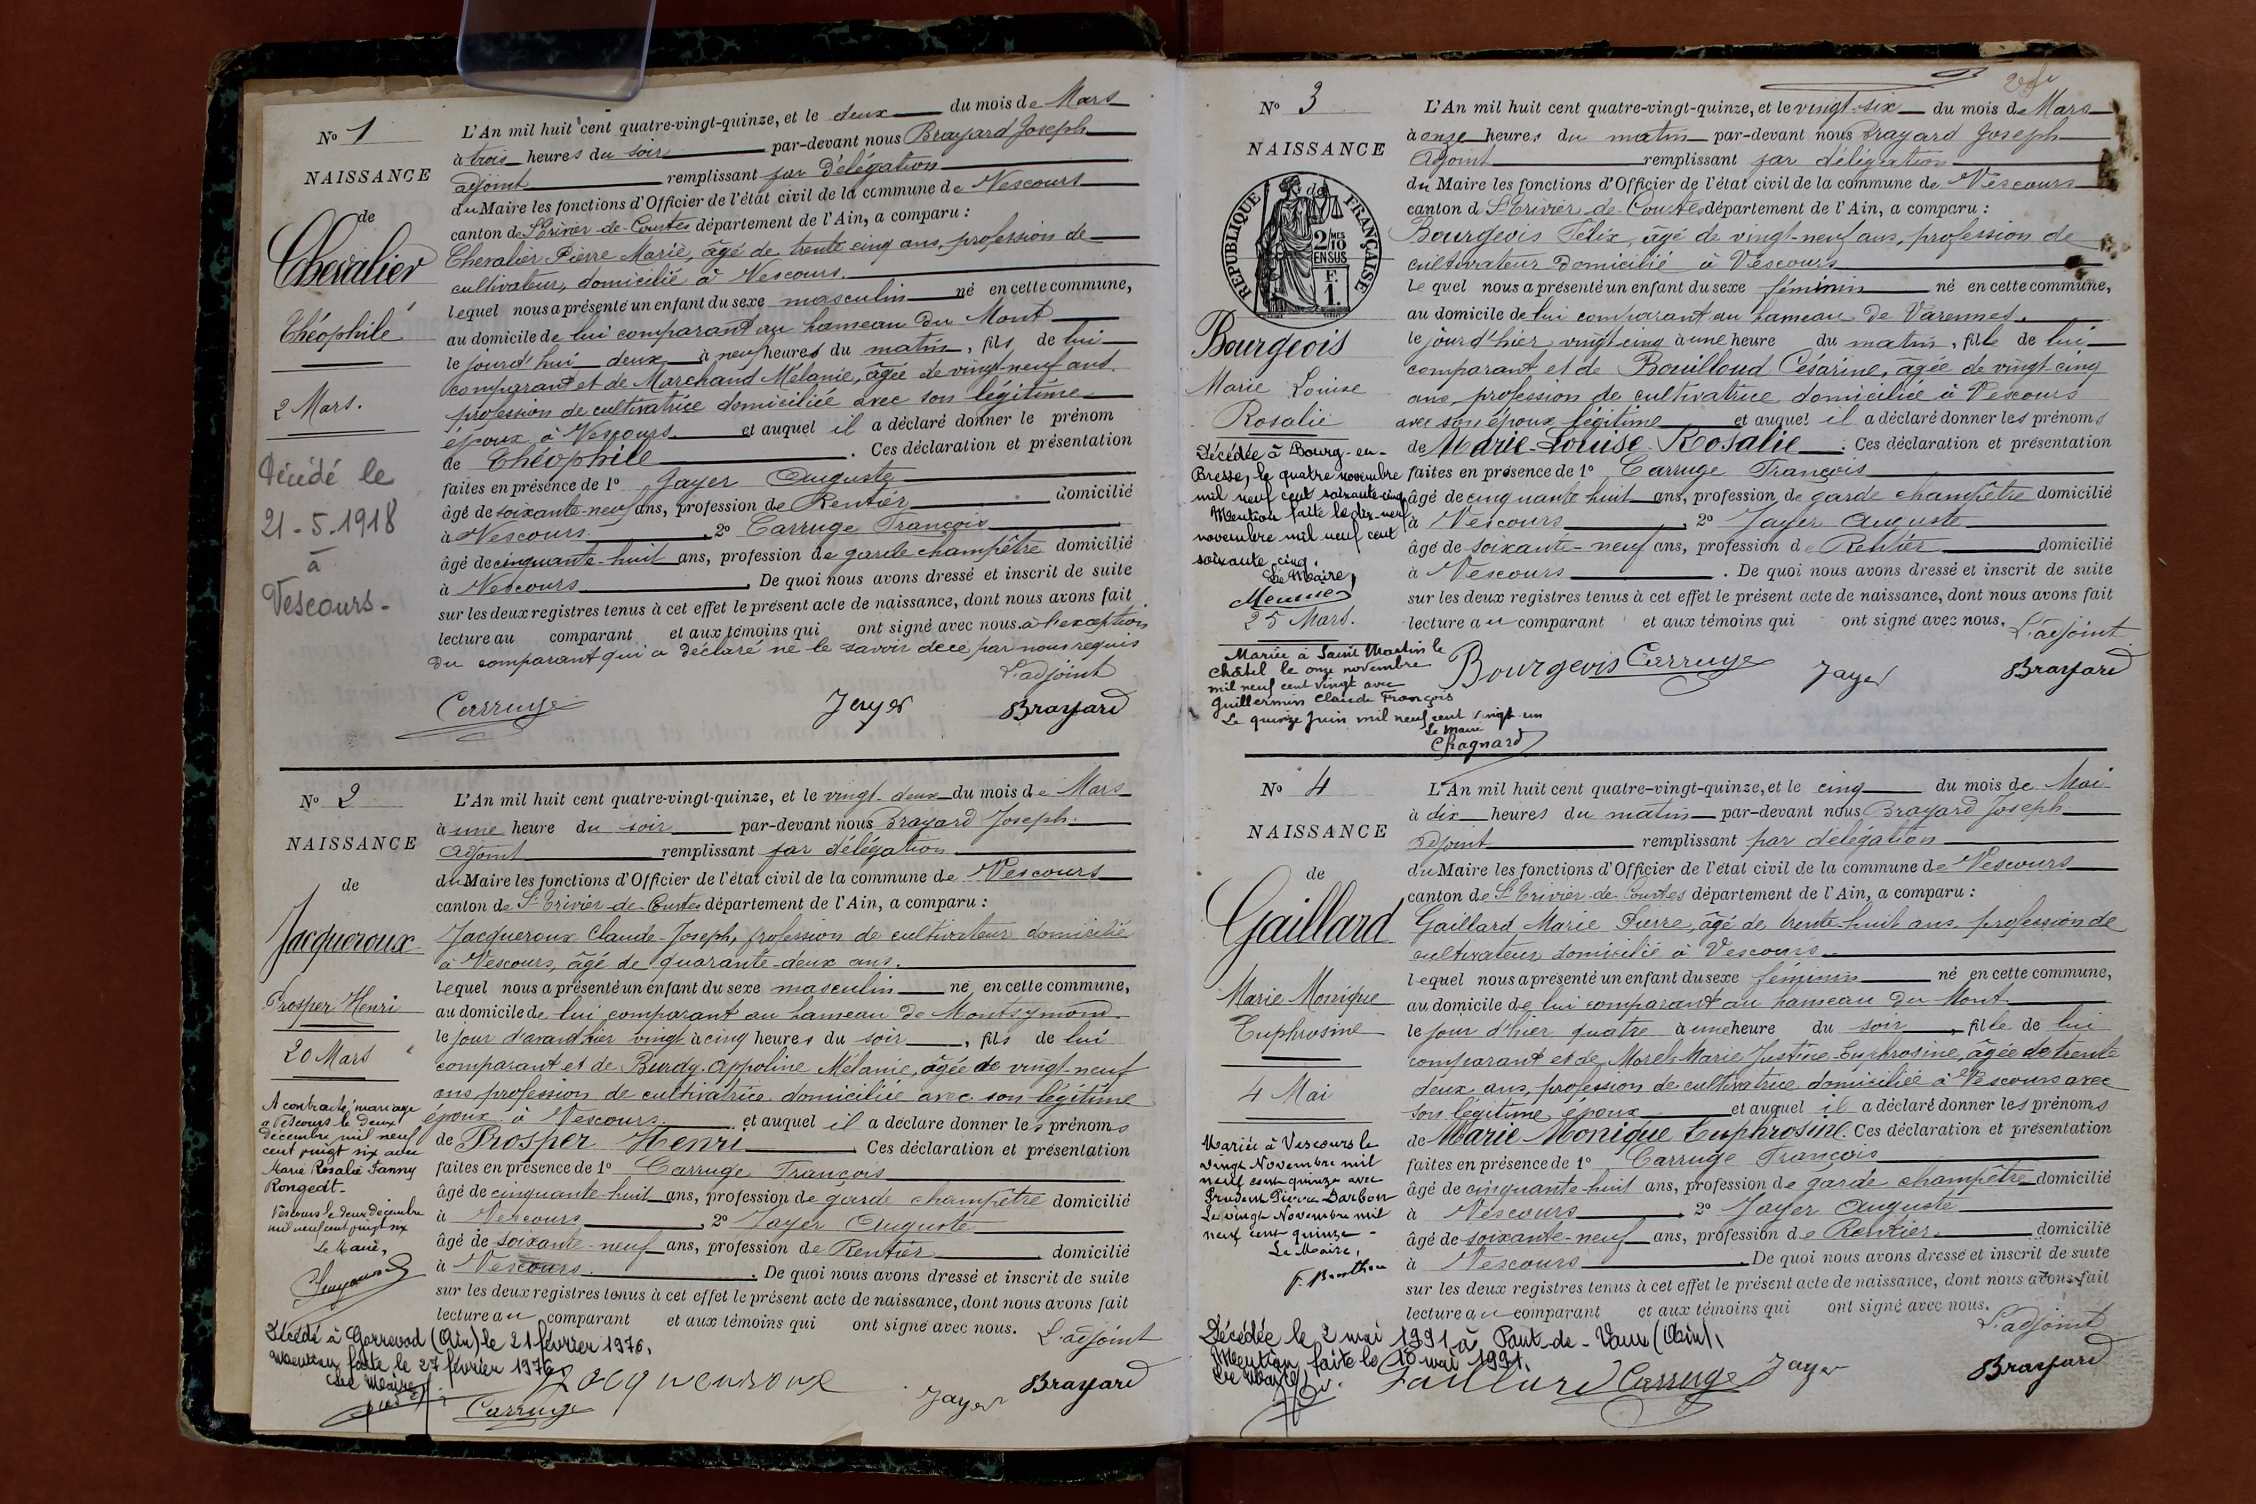 N° 1
NAISSANCE
de
Chevalier
Théophile
2 Mars.
Décédé le
21-5-1918
à
Vescours-
L'An mil huit cent quatre-vingt-quinze, et le deux du mois de Mars
à trois heures du soir par-devant nous Brayard Joseph
adjoint remplissant par Délégation
du Maire les fonctions d'Officier de l'état civil de la commune de Vescours
canton de St Trivier-de-Courtes département de l'Ain, a comparu :
Chevalier Pierre Marie, âgé de trente cinq ans, profession de
cultivateur, domicilié à Vescours.
lequel nous a présenté un enfant du sexe masculin né en cette commune,
au domicile de lui comparant au hameau du Mont
le jourd'hui deux à neuf heures du matin, fils de lui
comparant et de Marchand Mélanie, âgée de vingt-neuf ans.
profession de cultivatrice domiciliée avec son légitime
époux à Vescours. et auquel il a déclaré donner le prénom
de Théophile. Ces déclaration et présentation
faites en présence de 1° Jayer Auguste
âgé de soixante-neuf ans, profession de Rentier domicilié
à Vescours, 2° Carruge François
âgé de cinquante-huit ans, profession de garde champêtre domicilié
à Vescours. De quoi nous avons dressé et inscrit de suite
sur les deux registres tenus à cet effet le présent acte de naissance, dont nous avons fait
lecture au comparant et aux témoins qui ont signé avec nous à l'exception
du comparant qui a déclaré ne le savoir de ce par nous requis
L'adjoint
Carruge Jayer Brayard
N° 2
NAISSANCE
de
Jacqueroux
Prosper Henri
20 Mars
A contracté mariage
à Vescours le deux
décembre mil neuf
cent vingt six avec
Marie Rosalie Fanny
Rongeat-
Vescours le deux décembre
mil neuf cent vingt six
Le Maire,
Décédé à Gorrevod (Ain) le 21 février 1976.
Mention faite le 27 février 1976
Le Maire,
L'An mil huit cent quatre-vingt-quinze, et le vingt-deux du mois de Mars
à une heure du soir par-devant nous Brayard Joseph.
adjoint remplissant par délégation
du Maire les fonctions d'Officier de l'état civil de la commune de Vescours
canton de St Trivier-de-Courtes département de l'Ain, a comparu :
Jacqueroux Claude-Joseph, profession de cultivateur domicilié
à Vescours, âgé de quarante-deux ans.
lequel nous a présenté un enfant du sexe masculin né en cette commune,
au domicile de lui comparant au hameau de Montsymond
le jour d'avant hier vingt à cinq heures du soir, fils de lui
comparant et de Burdy Appoline Mélanie, âgée de vingt-neuf
ans profession de cultivatrice domiciliée avec son légitime
époux à Vescours et auquel il a déclaré donner les prénoms
de Prosper Henri. Ces déclaration et présentation
faites en présence de 1° Carruge François
âgé de cinquante-huit ans, profession de garde champêtre domicilié
à Vescours, 2° Jayer Auguste
âgé de soixante-neuf ans, profession de Rentier domicilié
à Vescours. De quoi nous avons dressé et inscrit de suite
sur les deux registres tenus à cet effet le présent acte de naissance, dont nous avons fait
lecture au comparant et aux témoins qui ont signé avec nous. L'adjoint
Jacqueroux Carruge Jayer Brayard
N° 3
NAISSANCE
de
RÉPUBLIQUE FRANÇAISE
2/10 MES
EN SUS
F.
1.
Bourgeois
Marie Louise
Rosalie
Décédée à Bourg-en-
Bresse, le quatre novembre
mil neuf cent soixante-cinq
Mention faite le dix-neuf
novembre mil neuf cent
soixante cinq.
Le Maire,
Meunier
25 Mars.
Mariée à Saint Martin le
Châtel le onze novembre
mil neuf cent vingt avec
Guillermin Claude François
Le quinze Juin mil neuf cent vingt-un
Le Maire
Chagnard
L'An mil huit cent quatre-vingt-quinze, et le vingt-six du mois de Mars
à onze heures du matin par-devant nous Brayard Joseph
adjoint remplissant par délégation
du Maire les fonctions d'Officier de l'état civil de la commune de Vescours
canton de St Trivier-de-Courtes département de l'Ain, a comparu :
Bourgeois Félix, âgé de vingt-neuf ans, profession de
cultivateur domicilié à Vescours
lequel nous a présenté un enfant du sexe féminin né en cette commune,
au domicile de lui comparant au hameau de Varennes.
le jour d'hier vingt-cinq à une heure du matin, fille de lui
comparant et de Bouilloud Césarine, âgée de vingt-cinq
ans profession de cultivatrice domiciliée à Vescours
avec son époux légitime et auquel il a déclaré donner les prénoms
de Marie-Louise-Rosalie. Ces déclaration et présentation
faites en présence de 1° Carruge François
âgé de cinquante huit ans, profession de garde champêtre domicilié
à Vescours, 2° Jayer Auguste
âgé de soixante-neuf ans, profession de Rentier domicilié
à Vescours. De quoi nous avons dressé et inscrit de suite
sur les deux registres tenus à cet effet le présent acte de naissance, dont nous avons fait
lecture au comparant et aux témoins qui ont signé avec nous. L'adjoint
Bourgeois Carruge Jayer Brayard
N° 4
NAISSANCE
de
Gaillard
Marie Monique
Euphrosine
4 Mai
Mariée à Vescours le
vingt Novembre mil
neuf cent quinze avec
Prudent Pierre Darbon
Le vingt Novembre mil
neuf cent quinze-
Le Maire,
Décédée le 2 mai 1991 à Pont-de-Vaux (Ain).
Mention faite le 10 mai 1991.
Le Maire,
L'An mil huit cent quatre-vingt-quinze, et le cinq du mois de Mai
à dix heures du matin par-devant nous Brayard Joseph
adjoint remplissant par délégation
du Maire les fonctions d'Officier de l'état civil de la commune de Vescours
canton de St Trivier-de-Courtes département de l'Ain, a comparu :
Gaillard Marie Pierre, âgé de trente-huit ans profession de
cultivateur domicilié à Vescours
lequel nous a présenté un enfant du sexe féminin né en cette commune,
au domicile de lui comparant au hameau du Mont
le jour d'hier quatre à une heure du soir, fille de lui
comparant et de Morel Marie Justine-Euphrosine, âgée de trente
deux ans, profession de cultivatrice domiciliée à Vescours avec
son légitime époux et auquel il a déclaré donner les prénoms
de Marie-Monique Euphrosine. Ces déclaration et présentation
faites en présence de 1° Carruge François
âgé de cinquante-huit ans, profession de garde champêtre domicilié
à Vescours, 2° Jayer Auguste
âgé de soixante-neuf ans, profession de Rentier domicilié
à Vescours. De quoi nous avons dressé et inscrit de suite
sur les deux registres tenus à cet effet le présent acte de naissance, dont nous avons fait
lecture au comparant et aux témoins qui ont signé avec nous.
L'adjoint
Gaillard Carruge Jayer Brayard